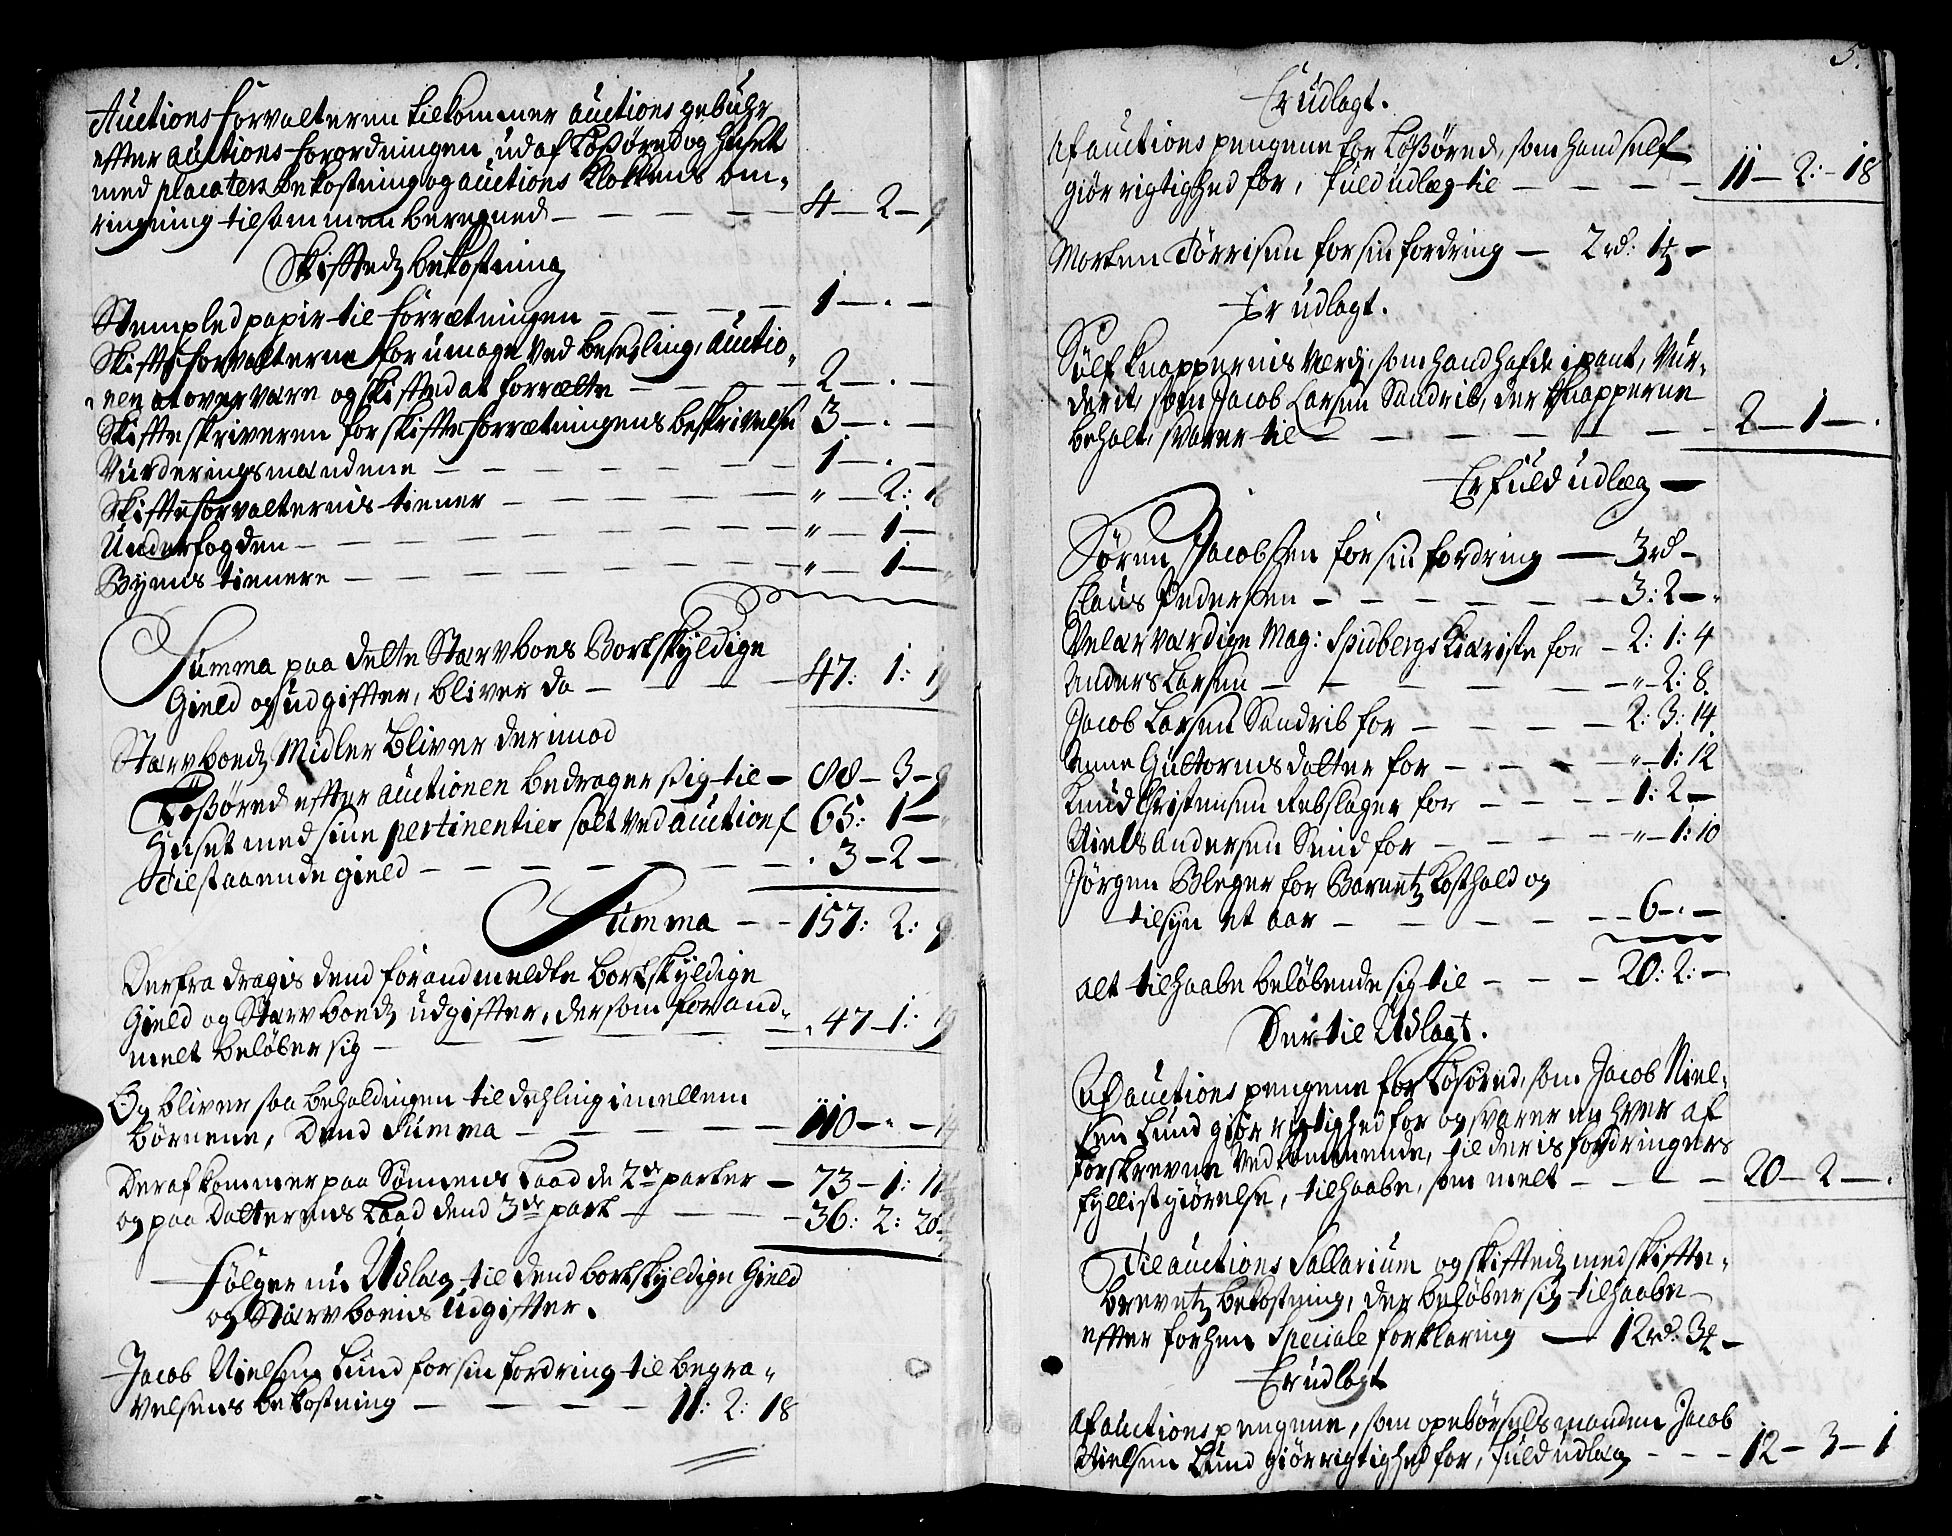 Auctions forvalteren tilkommer auctions gebuhr
efter auctions forordningen, ud af Løßøred og Huset
med placaters bekostning og auctions Klokkens om„
ringning tilsammen beregned — 4 — 2 — 9
Skiftedz bekostning
Stempled papir til forrætningen — 1 — . —
Skifteforvalterne for umage ved besegling, auctio„
nen at overvære og skifted at forrætte — 2 — . —
Skifteskriveren for skifteforrætningens beskrivelse 3 — . —
Vurderingsmændene — 1 — . —
Skifteforvalternis tiener — „ — 2: 16
Underfogden — „ — 1 —
Byens tienere — „ — 1 —
Summa paa dette Stærvboes Bortskyldige
Gield og udgiffter, bliver da — 47: 1: 19
Stærvboedz Midler bliver derimod
Løßøred effter auctionen bedrager sig til — 88 — 3 — 9
Huset med sine pertinentier solt ved auction f 65: 1 —
Tilstaaende gield — 3 — 2 —
Summa — 157: 2: 9
Derfra dragis dend forandmeldte bortskyldige
Gield og Stærvboedz udgiffter, der som forand„
melt beløber sig — 47 — 1: 19
Og bliver saa beholdingen til dehling imellem
børnene, Dend Summa — 110 — „ — 14
Deraf kommer paa Sønnens Laad de 2de parter — 73 — 1:
og paa Datterens Laad dend 3de part — 36: 2: 20
Følger nu Udlæg til dend bortskyldige Gield
og Stærvboens Udgifter.
Jacob Nielsen Lund for sin fordring til begra„
velsens bekostning — 11: 2: 18
5.
Er udlagt.
Af auctions pengene for Løßøred, som hand self
giør rigtighed for, fuld udlæg til — 11 — 2: — 18
Morten Tørrisen for sin fordring — 2 rd: 1 —
Er udlagt.
Sølf knappernis Værdi, som hand hafde i pant, Vur„
derit, som Jacob Larsen Sandrib, der knapperne
beholt, svarer til — 2 — 1 — .
Er fuld udlæg —
Søren Jacobsen for sin fordring — 3 rd —
Claus Pedersen — 3: 2 —
Velærværdige Mag: Spidbergs Kiæriste for — 2: 1: 4
Anders Larsen — „ 2: 8.
Jacob Larsen Sandrib for — 2: 3: 14
Anne Guttormsdatter for — „ — 1: 12
Knud Christensen Rebslager for — 1: 2 —
Niels Andersen Smid for — „ — 1: 10
Jørgen Bleger for Barnetz Kosthold og
tilsyn et aar — 6 — . —
alt tilhaabe beløbende sig til — 20: 2: —
Dertil Udlagt.
Af auctions pengene for Løsøred, som Jacob Niel„
sen Lund giør rigtighed for og svarer en hver af
forskrevne Vedkommende, til deris fordringers
fyllistgiørelse, tilhaabe, som melt — 20 — 2 — .
Til auctions Sallarium og skiftedz med skifte„
brevetz bekostning, der beløber sig tilhaabe
effter forhen Speciale forklaring — 12 rd: 3 —
Er udlagt
Af auctions pengene, som opebørsels manden Jacob
Nielsen Lund giør rigtighed for, fuld udlæg — 12 — 3 — 1